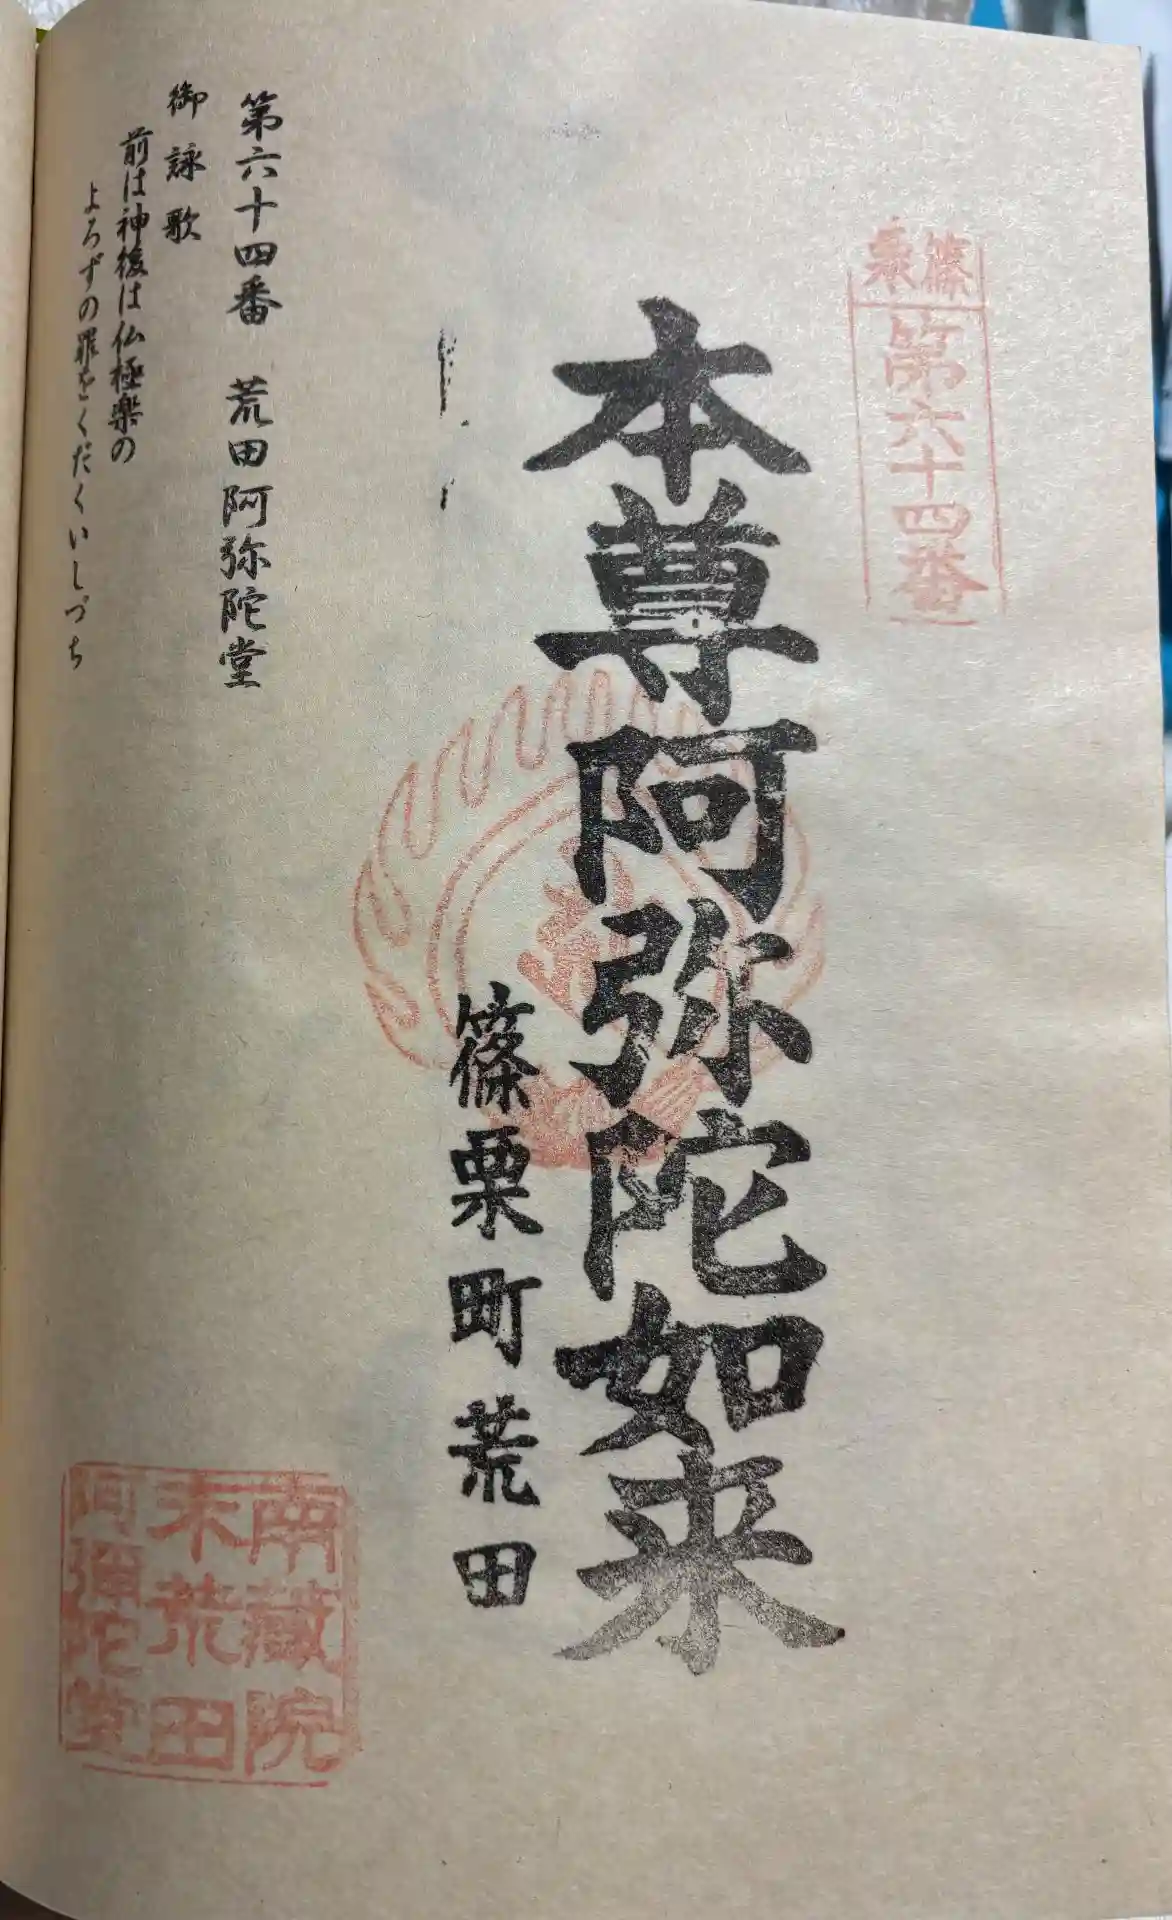 篠栗
第六十四番
本尊阿弥陀如来
篠栗町荒田
第六十四番 荒田阿弥陀堂
御詠歌
前は神後は仏極楽の
よろずの罪をくだくいしづち
南蔵院
末荒田
阿彌陀堂